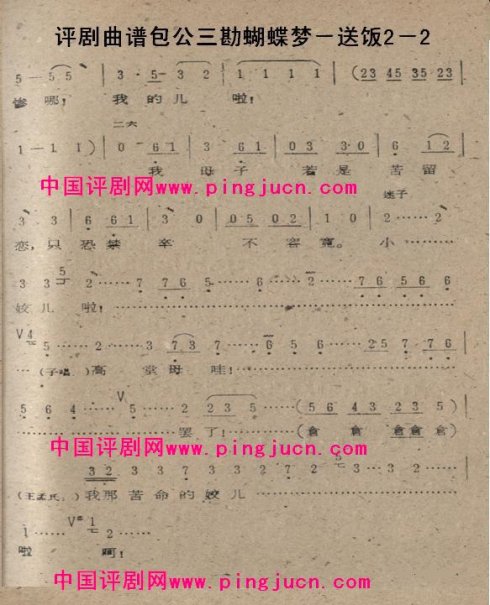 评剧曲谱包公三勘蝴蝶梦-送饭2-2
5 — 5 5 | 3 · 5 · 3 2 | 1 — | 1 — | (23 45 35 23
惨哪! 我的儿 啦!
二六
1 — 1 1 ) | 0 61 | 3 61 | 03 30 | 6 12 |
我 母子 若是 苦留
迷子
中国评剧网www.pingjucn.com
3 3 | 6 61 | 3 0 | 05 02 | 1 0 | 2 …… 2 ……
恋,只恐禁 卒 不容宽。 小……
3 3 5 2 …… 2 …… 7 76 5 …… 6 …… 76 56 6
姣儿 啦! ……
V4 5 …… 2 3 7 3 7 …… 6 5 6 …… 25 7 76
……(子唱) 高 堂母 哇! ……
5 6 4 …… V 5 …… 2 2 3 5 …… (5 6 4 3 2 3 5)
…… 罢了! …… (倉 倉 倉倉 倉)
中国评剧网www.pingjucn.com
3 2 3 7 7 5 5 3 3 5
(王孟氏:)我那苦命的姣儿 ……
1 …… V6 1 2 ……
啦 呵!
中国评剧网www.pingjucn.com